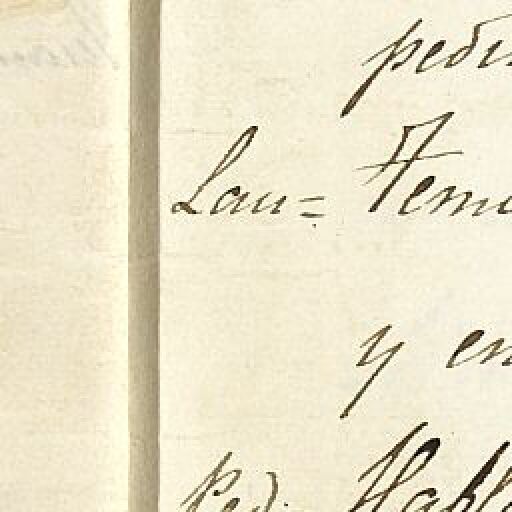 pedi
Lau= Teme
y en
Ped. Habla